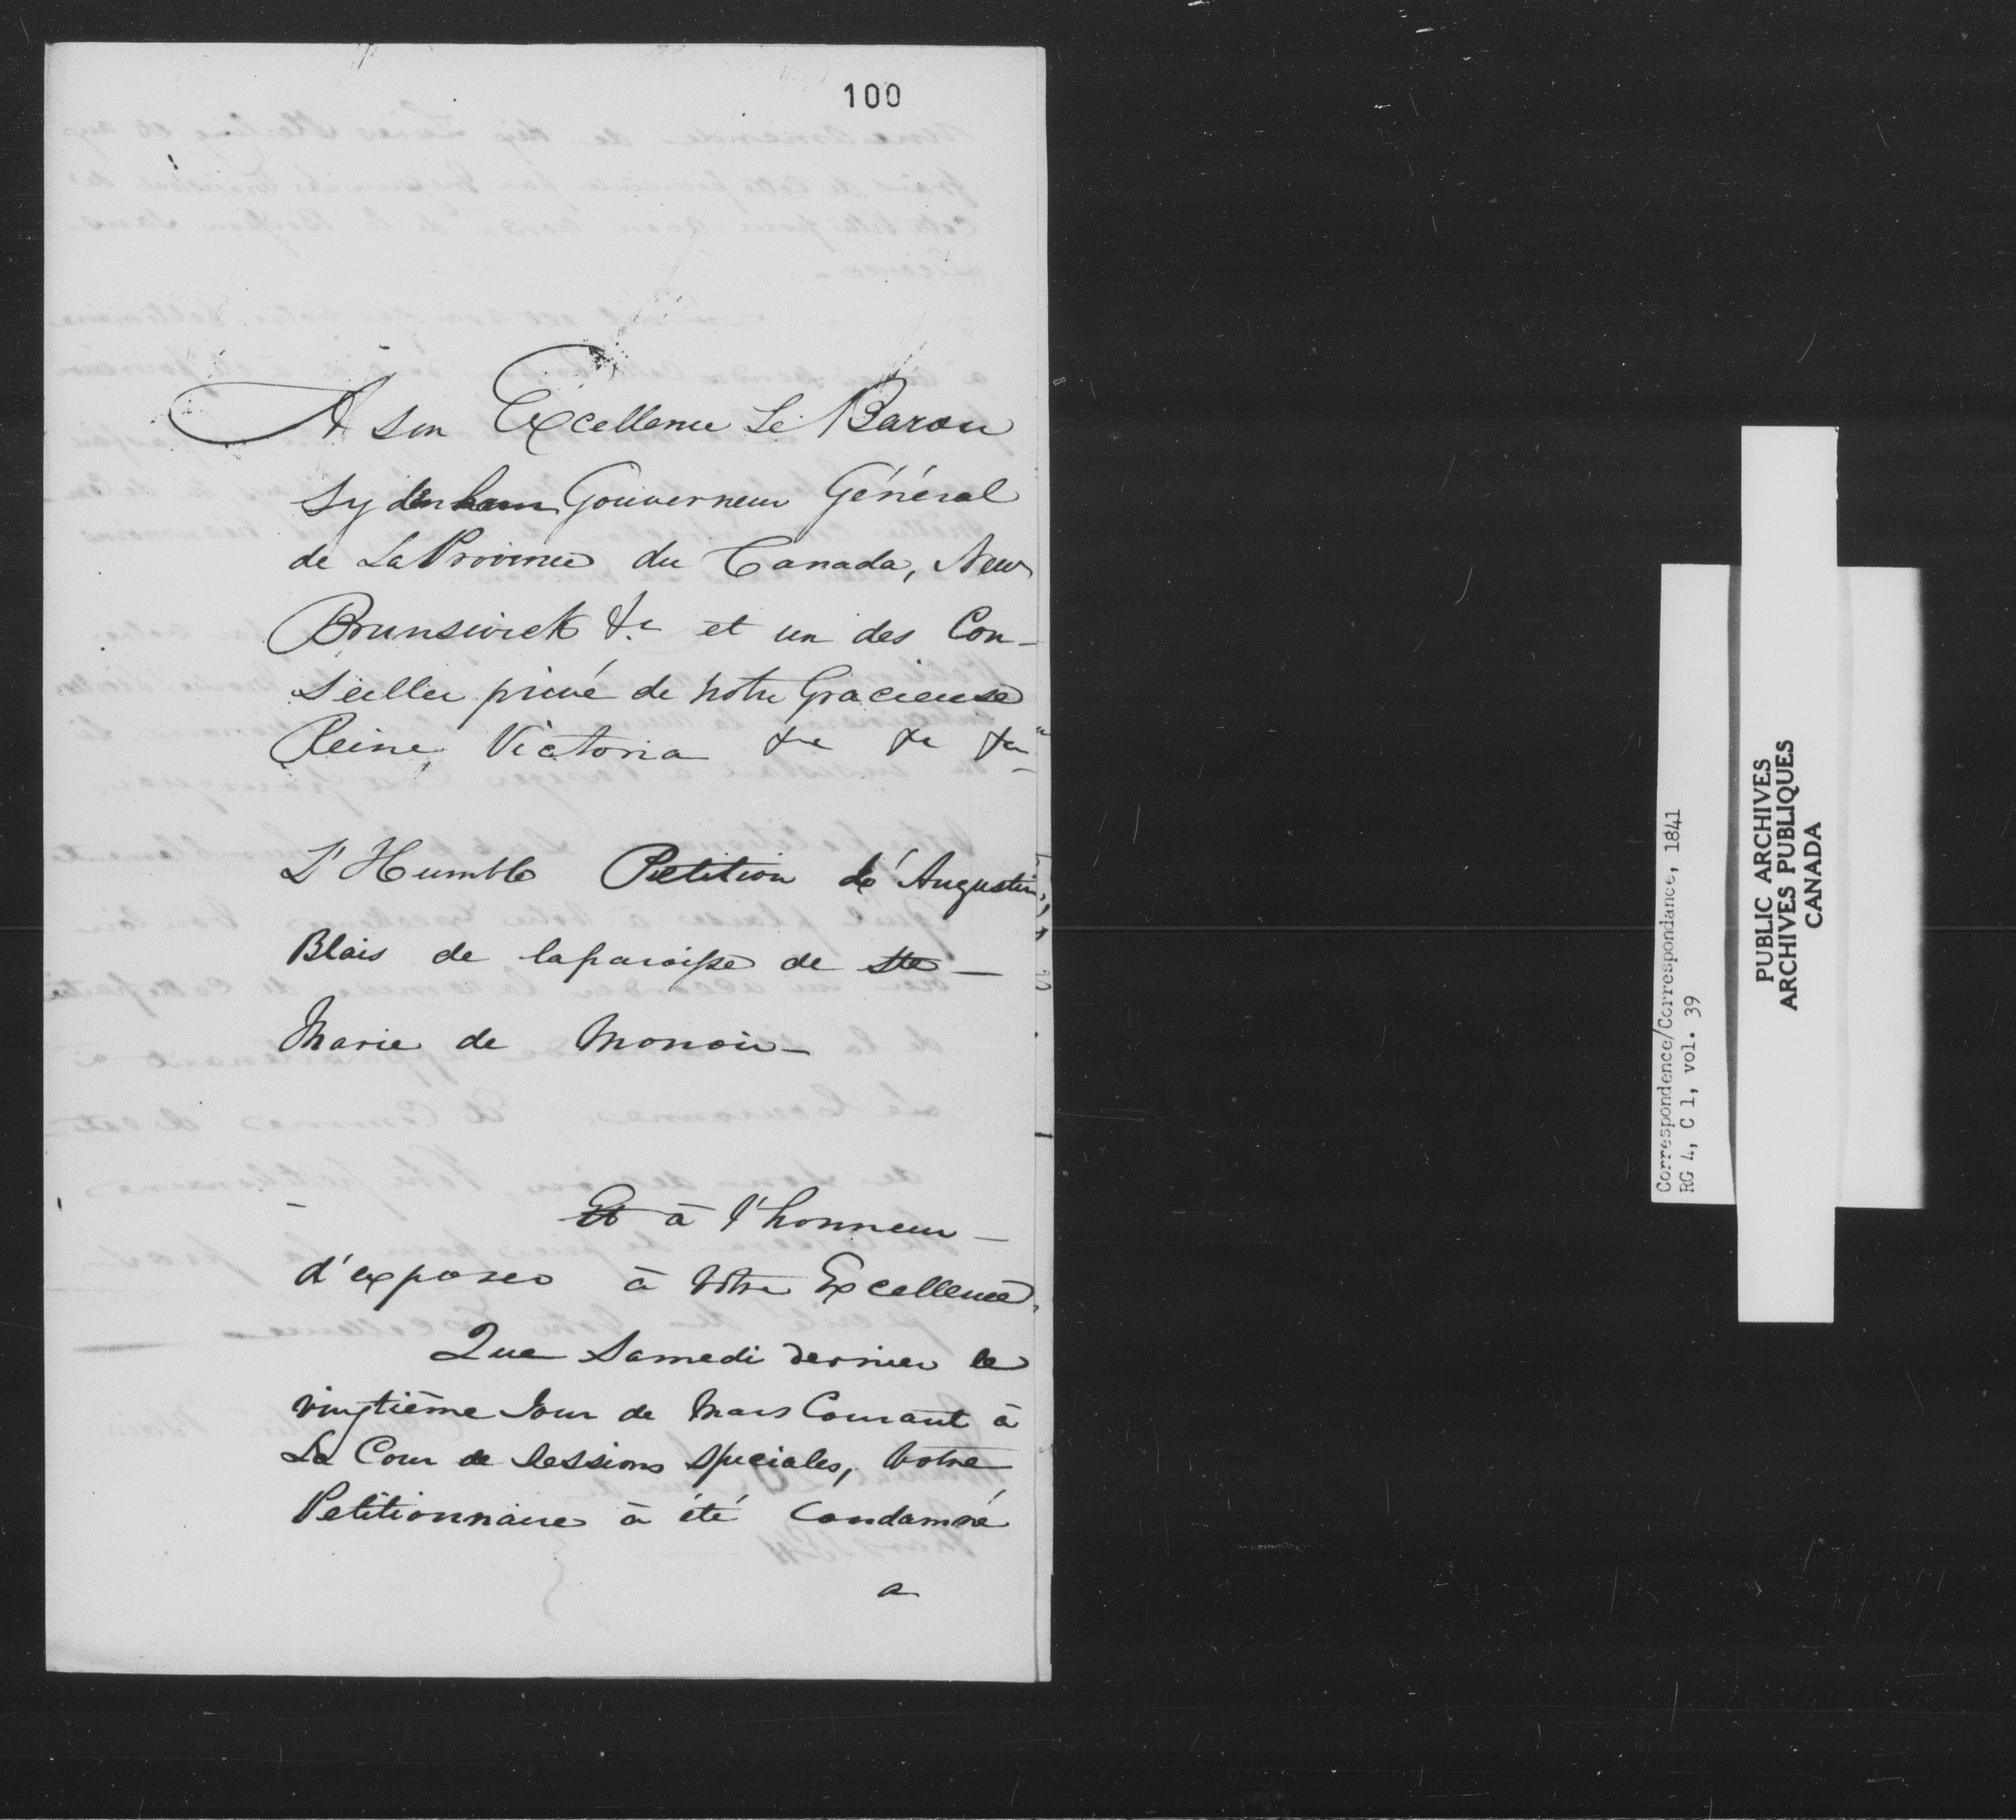 100
A Son Excellence Le Baron
Sydenham Gouverneur Général
de La Province du Canada, New
Brunswick &c et un des Con-
seiller privé de notre Gracieuse
Reine, Victoria &c &c &c
L'Humble Petition de' Augustin
Blais de la paroisse de Ste
Marie de Monoir
Et à l'honneur
d'exposer à Votre Excellence,
Que Samedi dernier le
vingtième Jour de Mars Courant à
La Cour de Sessions Spéciales, Votre
Petitionnaire à été Condamné
a
Correspondence/Correspondance, 1841
RG 4, C 1, vol. 39
PUBLIC ARCHIVES
ARCHIVES PUBLIQUES
CANADA